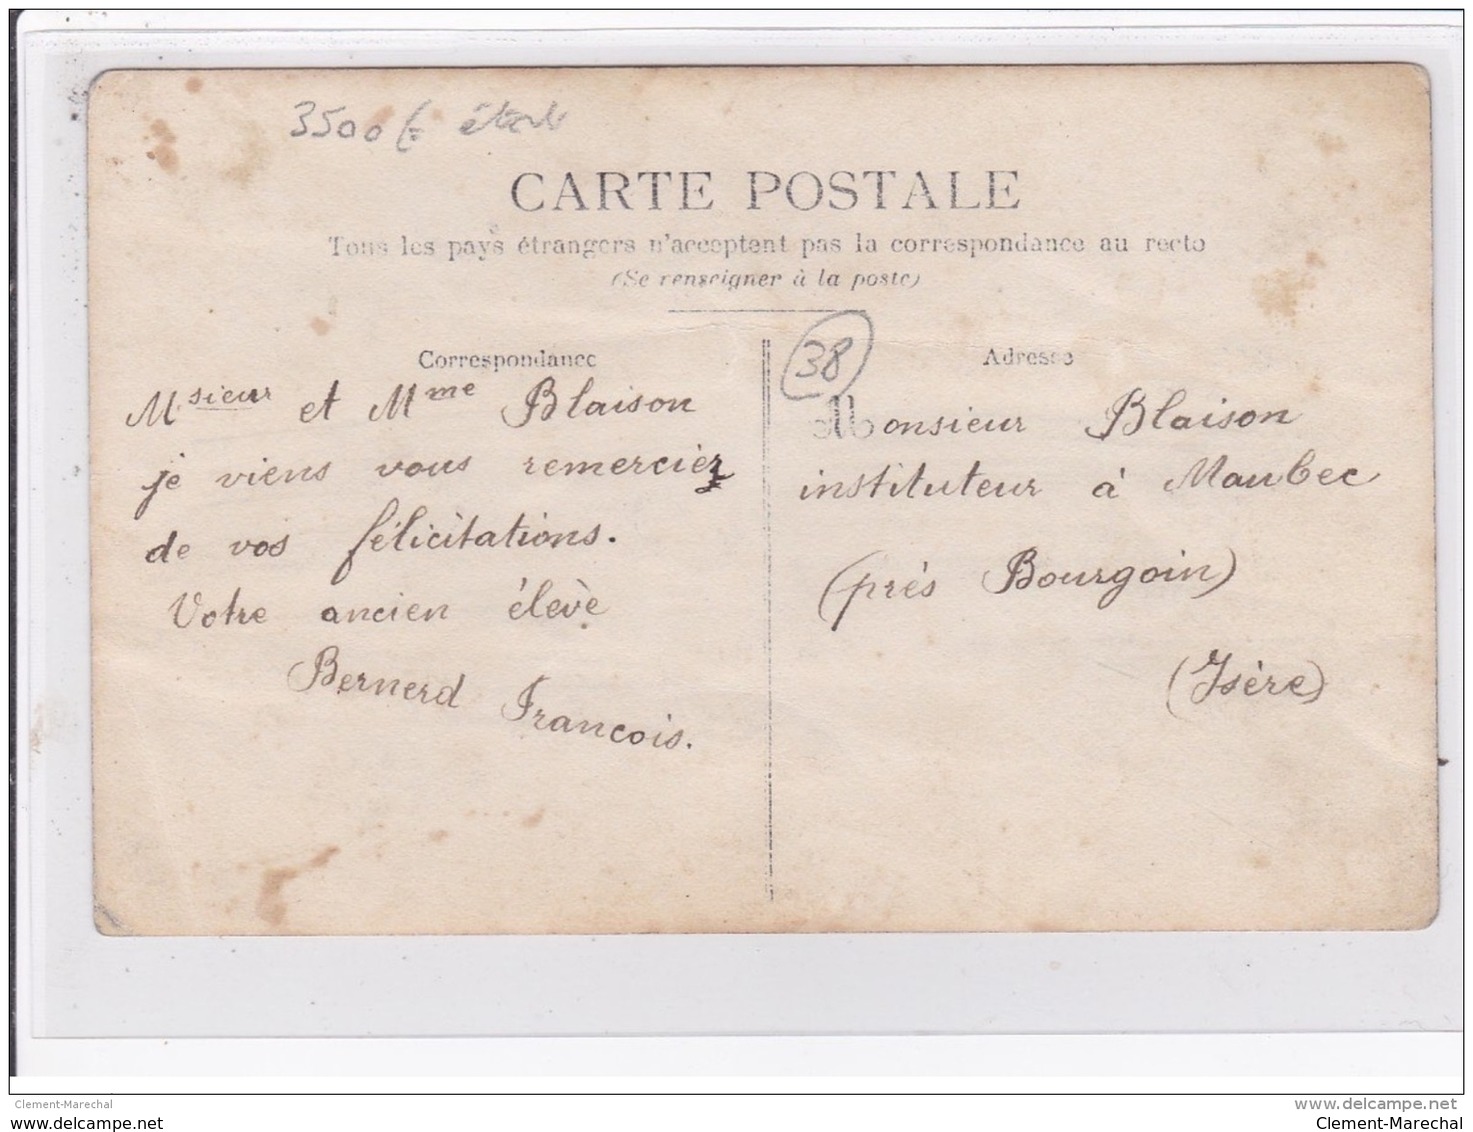 3500
CARTE POSTALE
Tous les pays étrangers n'acceptent pas la correspondance au recto
(Se renseigner à la poste)
Correspondance
Msieur et Mme Blaison
je viens vous remerciez
de vos félicitations.
Votre ancien élève
Bernerd Francois.
38
Adresse
Monsieur Blaison
instituteur à Maubec
(prés Bourgoin)
(Isère)
Clement-Marechal
www.delcampe.net
www.delcampe.net
Clement-Marechal